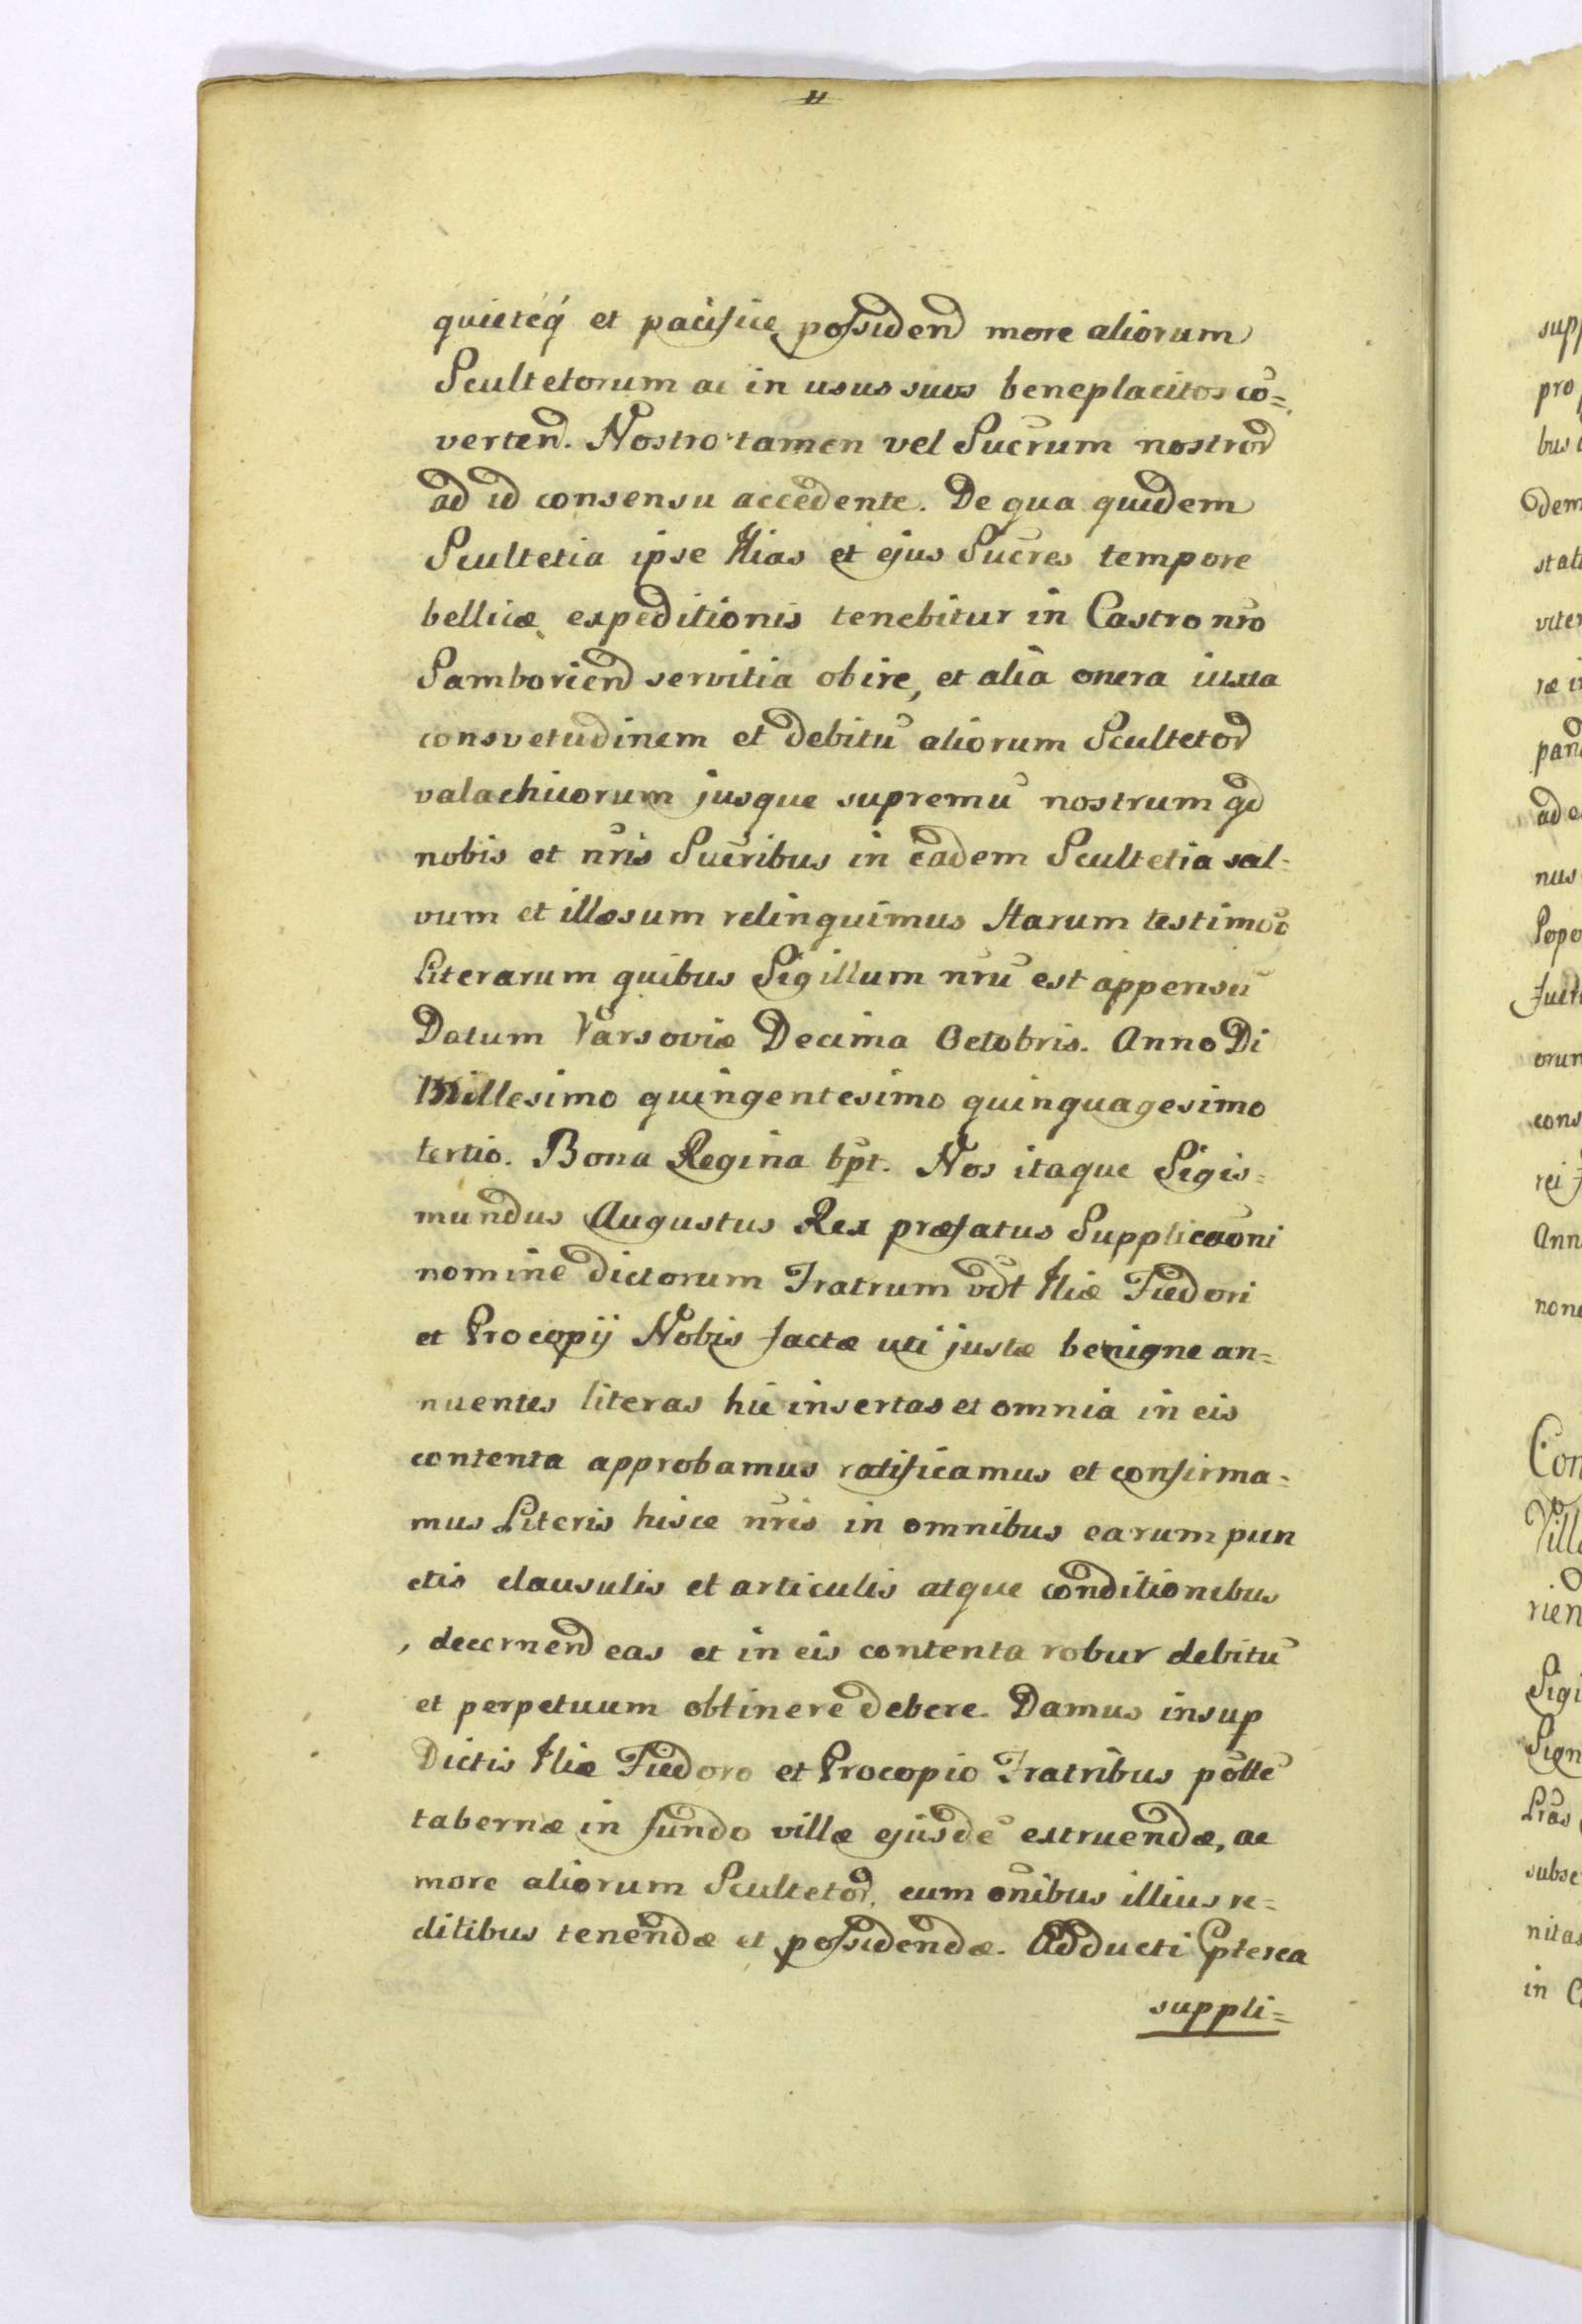 quieteq́ et pacifice possidend more aliorum
Scultetorum ac in usus suos beneplacitos cō=
verten̄d. Nostro tamen vel Succrum nostror̄
ad id consensu accedente. De qua quidem
Scultetia ipse Ilias et ejus Sucres tempore
bellicæ expeditionis tenebitur in Castro nr̄o
Samborien̄d servitia obire, et alia onera iuxta
consvetudinem et debitū aliorum Scultetor̄
valachicorum jusque supremū nostrum qd
nobis et nr̄is Sucribus in eadem Scultetia sal=
vum et illæsum relinquimus Harum testimō
Literarum quibus Sigillum nr̄ū est appensū
Datum Varsoviæ Decima Octobris. Anno Di
Millesimo quingentesimo quinquagesimo
tertio. Bona Regina Nos itaque Sigis=
mundus Augustus Rex præfatus Supplicaōni
nomine dictorum Fratrum vdt Iliæ Fiedori
et Procopij Nobis factæ uti justæ benigne an=
nuentes literas hic insertas et omnia in eis
contenta approbamus ratificamus et confirma=
mus Literis hisce nr̄is in omnibus earum pun
ctis clausulis et articulis atque conditionibus
, decernen̄d eas et in eis contenta robur debitū
et perpetuum obtinere debere. Damus insup
Dictis Iliæ Fiedoro et Procopio Fratribus pōttē
tabernæ in fundo villæ ejusdē extruendæ, ac
more aliorum Scultetor̄. cum ōnibus illius re=
ditibus tenendæ et possidendæ. Adducti pterea
suppli=
sup
pro
bus
dem
stab
viter
ræ i
pan
ad e
nus
Popo
orun
cons
rei
Ann
non
Con
Vill
rien
Sigi
Sign
Lr̄as
subsc
nitas
in C